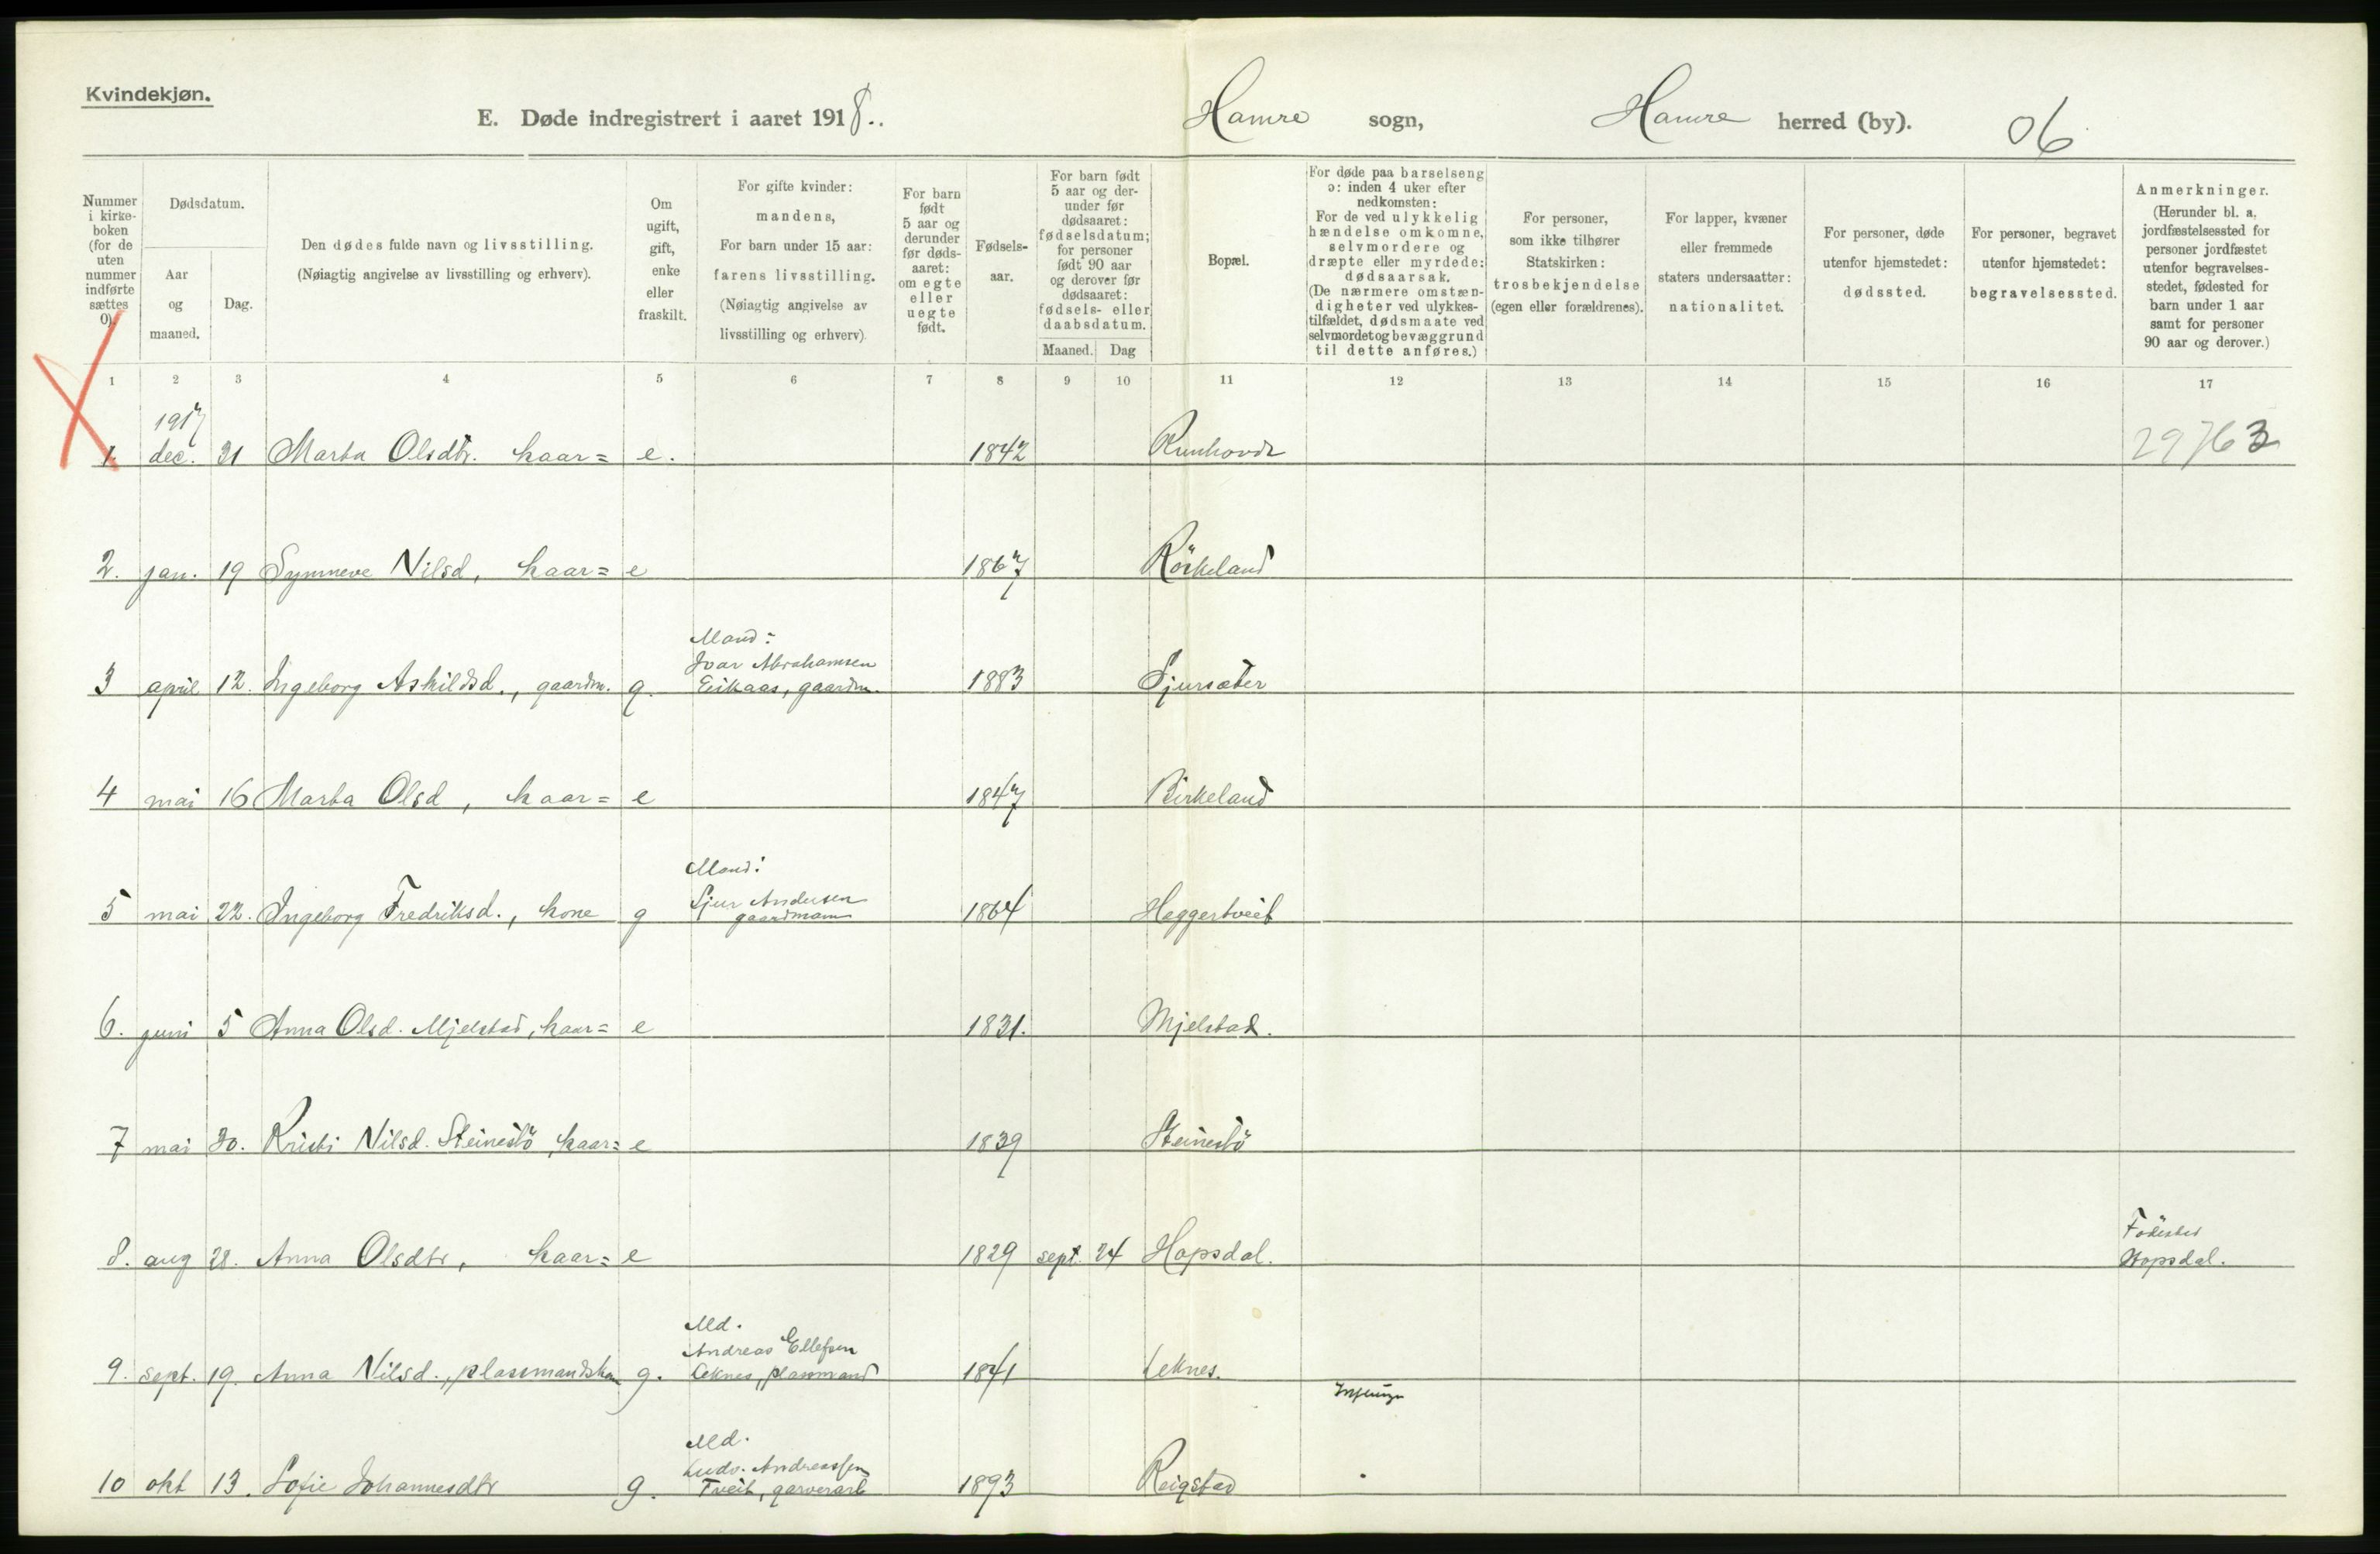 Kvindekjøn.
E. Døde indregistrert i aaret 1918.. Hamre sogn, Hamre herred (by). 06
Nummer i kirkeboken (for de uten nummer indførte sættes 0).
Dødsdatum.
Aar og maaned.
Dag.
Den dødes fulde navn og livsstilling. (Nøiagtig angivelse av livsstilling og erhverv).
Om ugift, gift, enke eller fraskilt.
For gifte kvinder: mandens, For barn under 15 aar: farens livsstilling. (Nøiagtig angivelse av livsstilling og erhverv)
For barn født 5 aar og derunder før dødsaaret: om egte eller uegte født.
Fødselsaar.
For barn født 5 aar og derunder før dødsaaret: fødselsdatum; for personer født 90 aar og derover før dødsaaret: fødsels- eller daabsdatum.
Maaned. Dag
Bopæl.
For døde paa barselseng ɔ: inden 4 uker efter nedkomsten: For de ved ulykkelig hændelse omkomne, selvmordere og dræpte eller myrdede: dødsaarsak. (De nærmere omstændigheter ved ulykkestilfældet, dødsmaate ved selvmordet og bevæggrund til dette anføres.)
For personer, som ikke tilhører Statskirken: trosbekjendelse (egen eller forældrenes).
For lapper, kvæner eller fremmede staters undersaatter: nationalitet.
For personer, døde utenfor hjemstedet: dødssted.
For personer, begravet utenfor hjemstedet: begravelsessted.
Anmerkninger. (Herunder bl. a. jordfæstelsessted for personer jordfæstet utenfor begravelsesstedet, fødested for barn under 1 aar samt for personer 90 aar og derover.)
1 2 3 4 5 6 7 8 9 10 11 12 13 14 15 16 17
1917
1. dec. 31 Marta Olsdtr. kaar= e. 1842 Runhovde 29763
2. jan. 19 Synneve Nilsd, kaar= e 1867 Röskeland
Mand:
Ivar Abrahamsen
3 april 12. Ingeborg Askildsd., gaardm. g. Eikaas, gaardm. 1883 Sjursæter
4 mai 16 Marta Olsd, kaar= e 1847 Birkeland
Mand:
Sjur Andersen
5 mai 22. Ingeborg Fredriksd., kone g gaardmann 1864 Heggertveit
6. juni 5 Anna Olsd. Mjelstad, kaar= e 1831. Mjelstad.
7 mai 30. Kristi Nilsd. Steinestö, kaar= e 1839 Steinestö
Födested
8. aug 28. Anna Olsdtr, kaar= e 1829 sept. 24 Hopsdal. Hopsdal.
Md.
Andreas Ellefsen
9. sept. 19. Anna Nilsd., plassmandskon g. Leknes, plassmand 1841 Leknes.
Md.
Ludv. Andreassen
10 okt 13. Sofie Johannesdtr g. Tveit, garverarb 1893 Reigstad